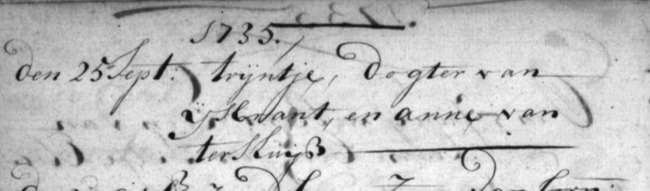 1735.
den 25 Sept. trijntje, dogter van
ijsbrant, en anne van
ter Sluijs